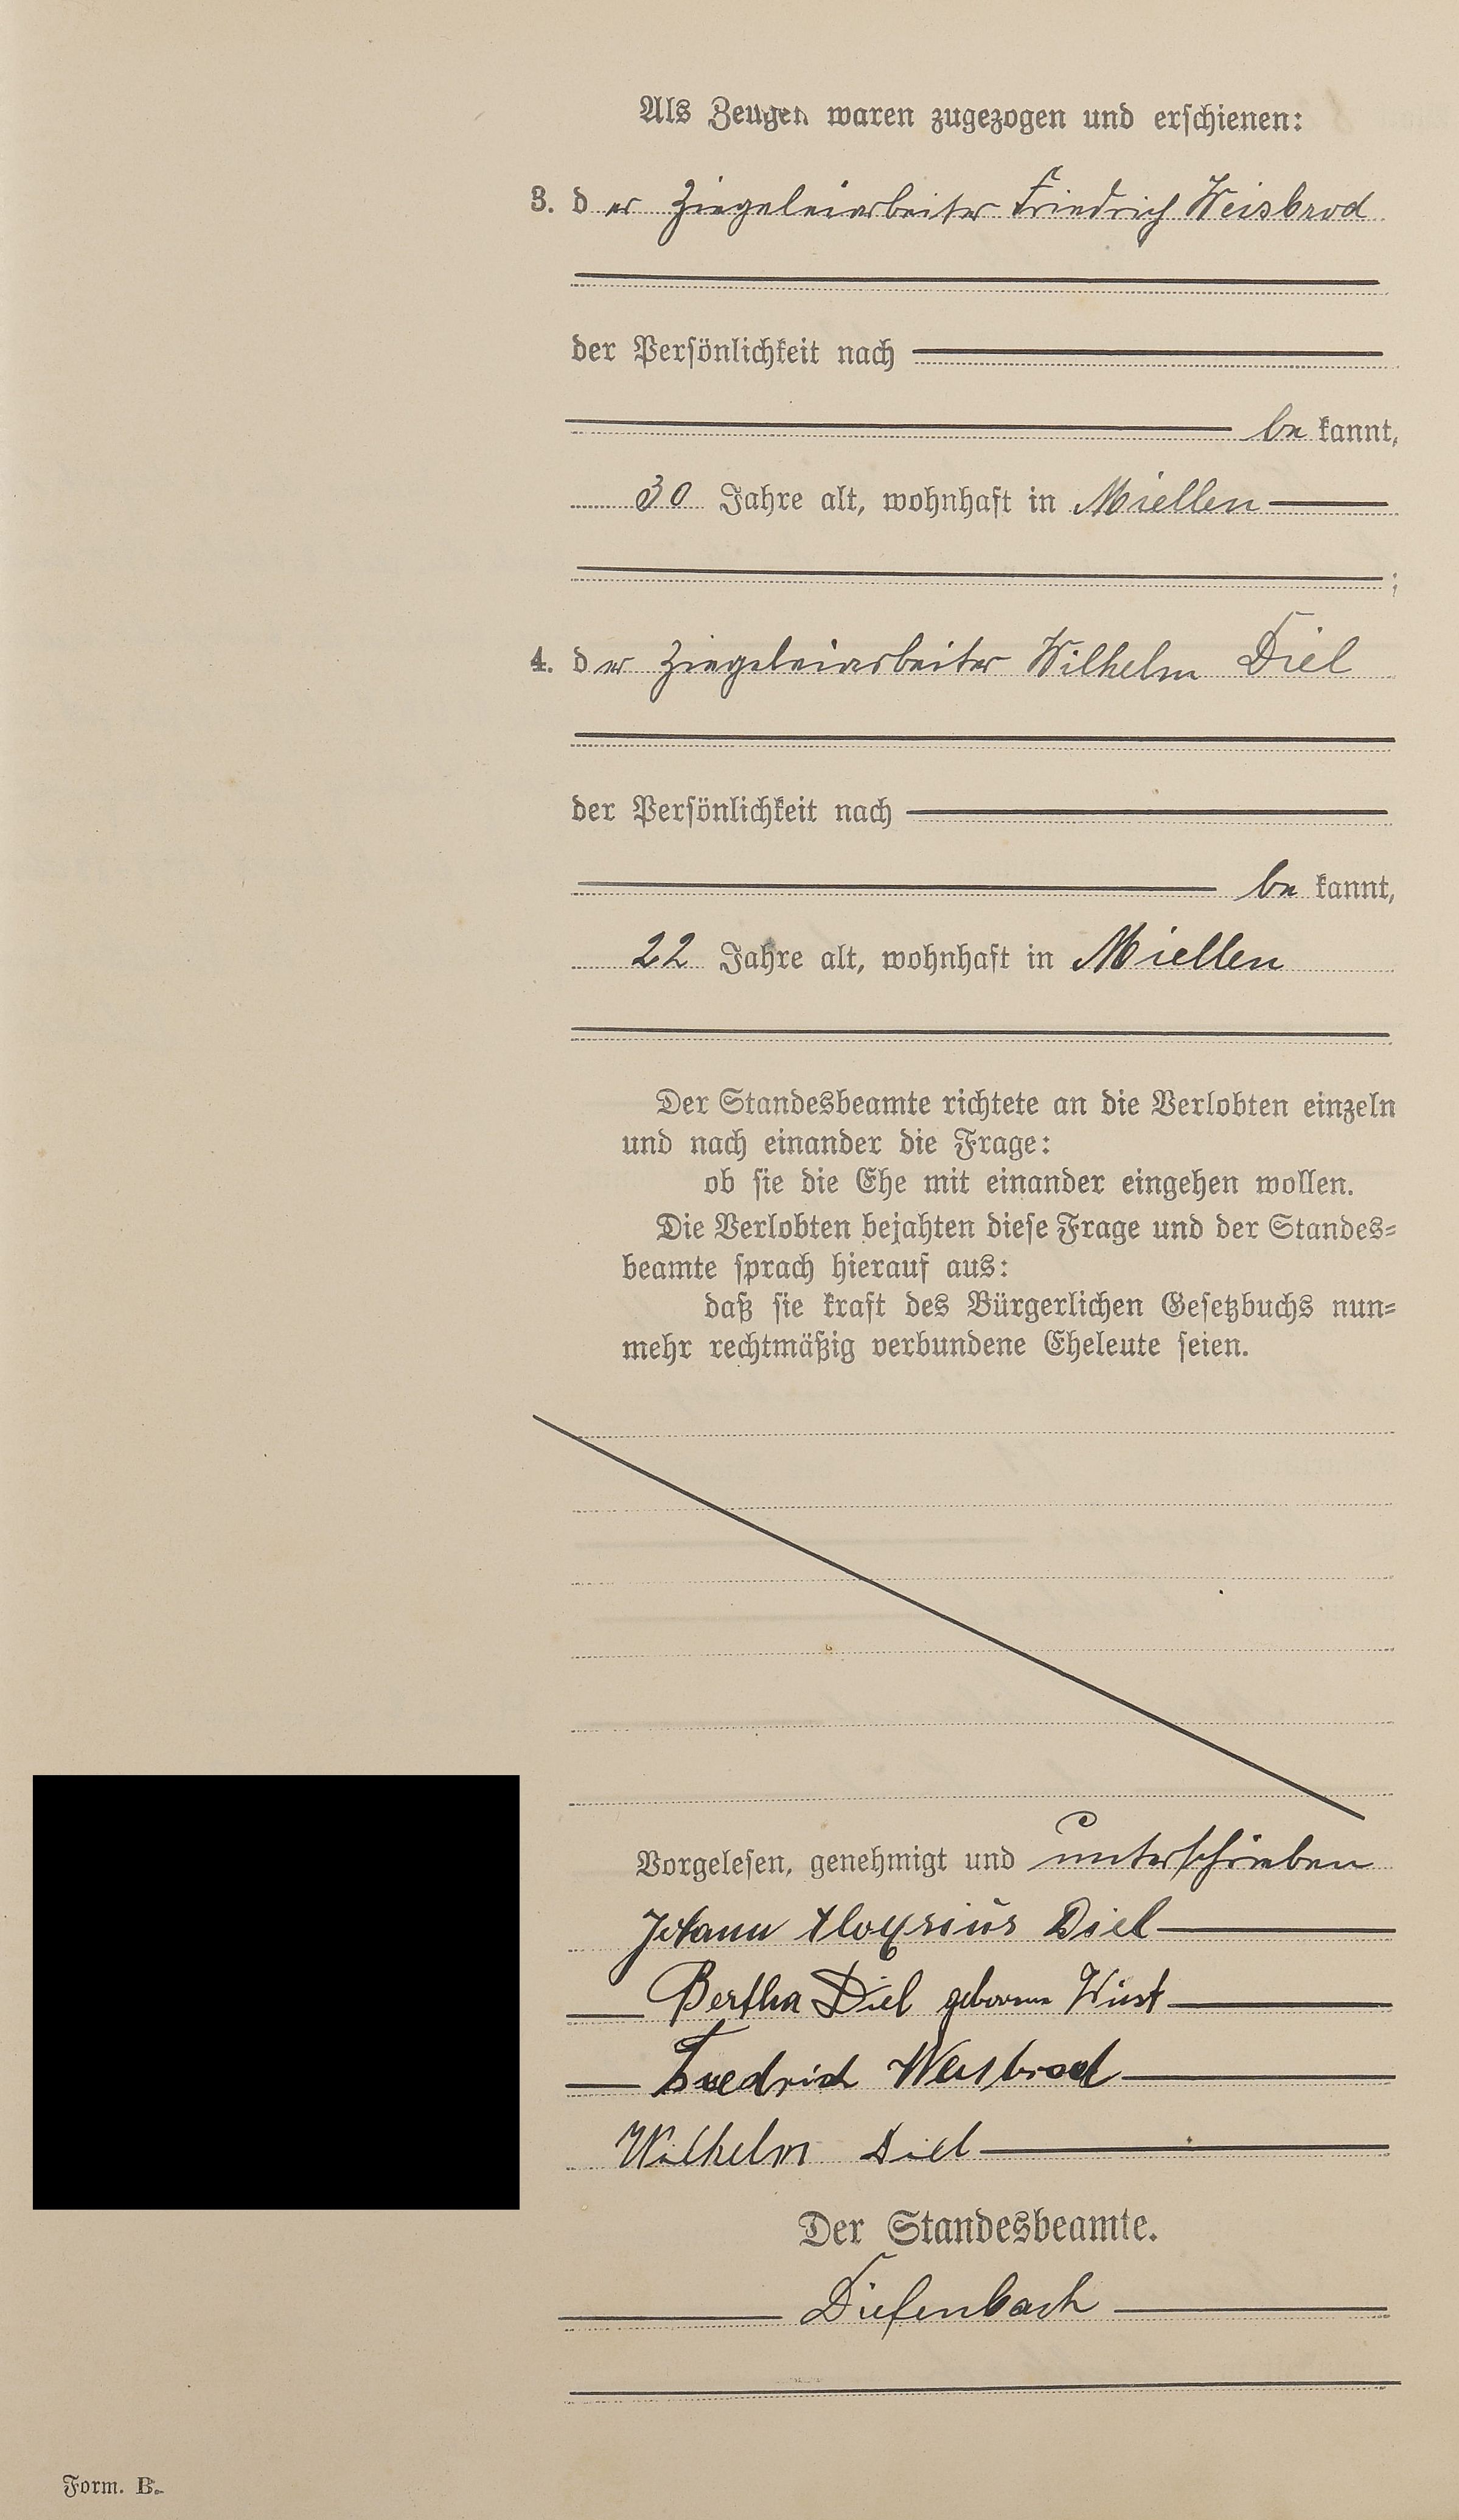 Als Zeugen waren zugezogen und erschienen:
3. der Ziegeleiarbeiter Friedrich Weisbrod
der Persönlichkeit nach
be kannt,
30 Jahre alt, wohnhaft in Miellen
;
4. der Ziegeleiarbeiter Wilhelm Diel
der Persönlichkeit nach
be kannt,
22 Jahre alt, wohnhaft in Miellen
Der Standesbeamte richtete an die Verlobten einzeln
und nach einander die Frage:
ob sie die Ehe mit einander eingehen wollen.
Die Verlobten bejahten diese Frage und der Standes-
beamte sprach hierauf aus:
daß sie kraft des Bürgerlichen Gesetzbuchs nun-
mehr rechtmäßig verbundene Eheleute seien.
Vorgelesen, genehmigt und unterschrieben
Johann Aloysius Diel
Bertha Diel geborene Wüst
Friedrich Weisbrod
Wilhelm Diel
Der Standesbeamte.
Diefenbach
Form. B.